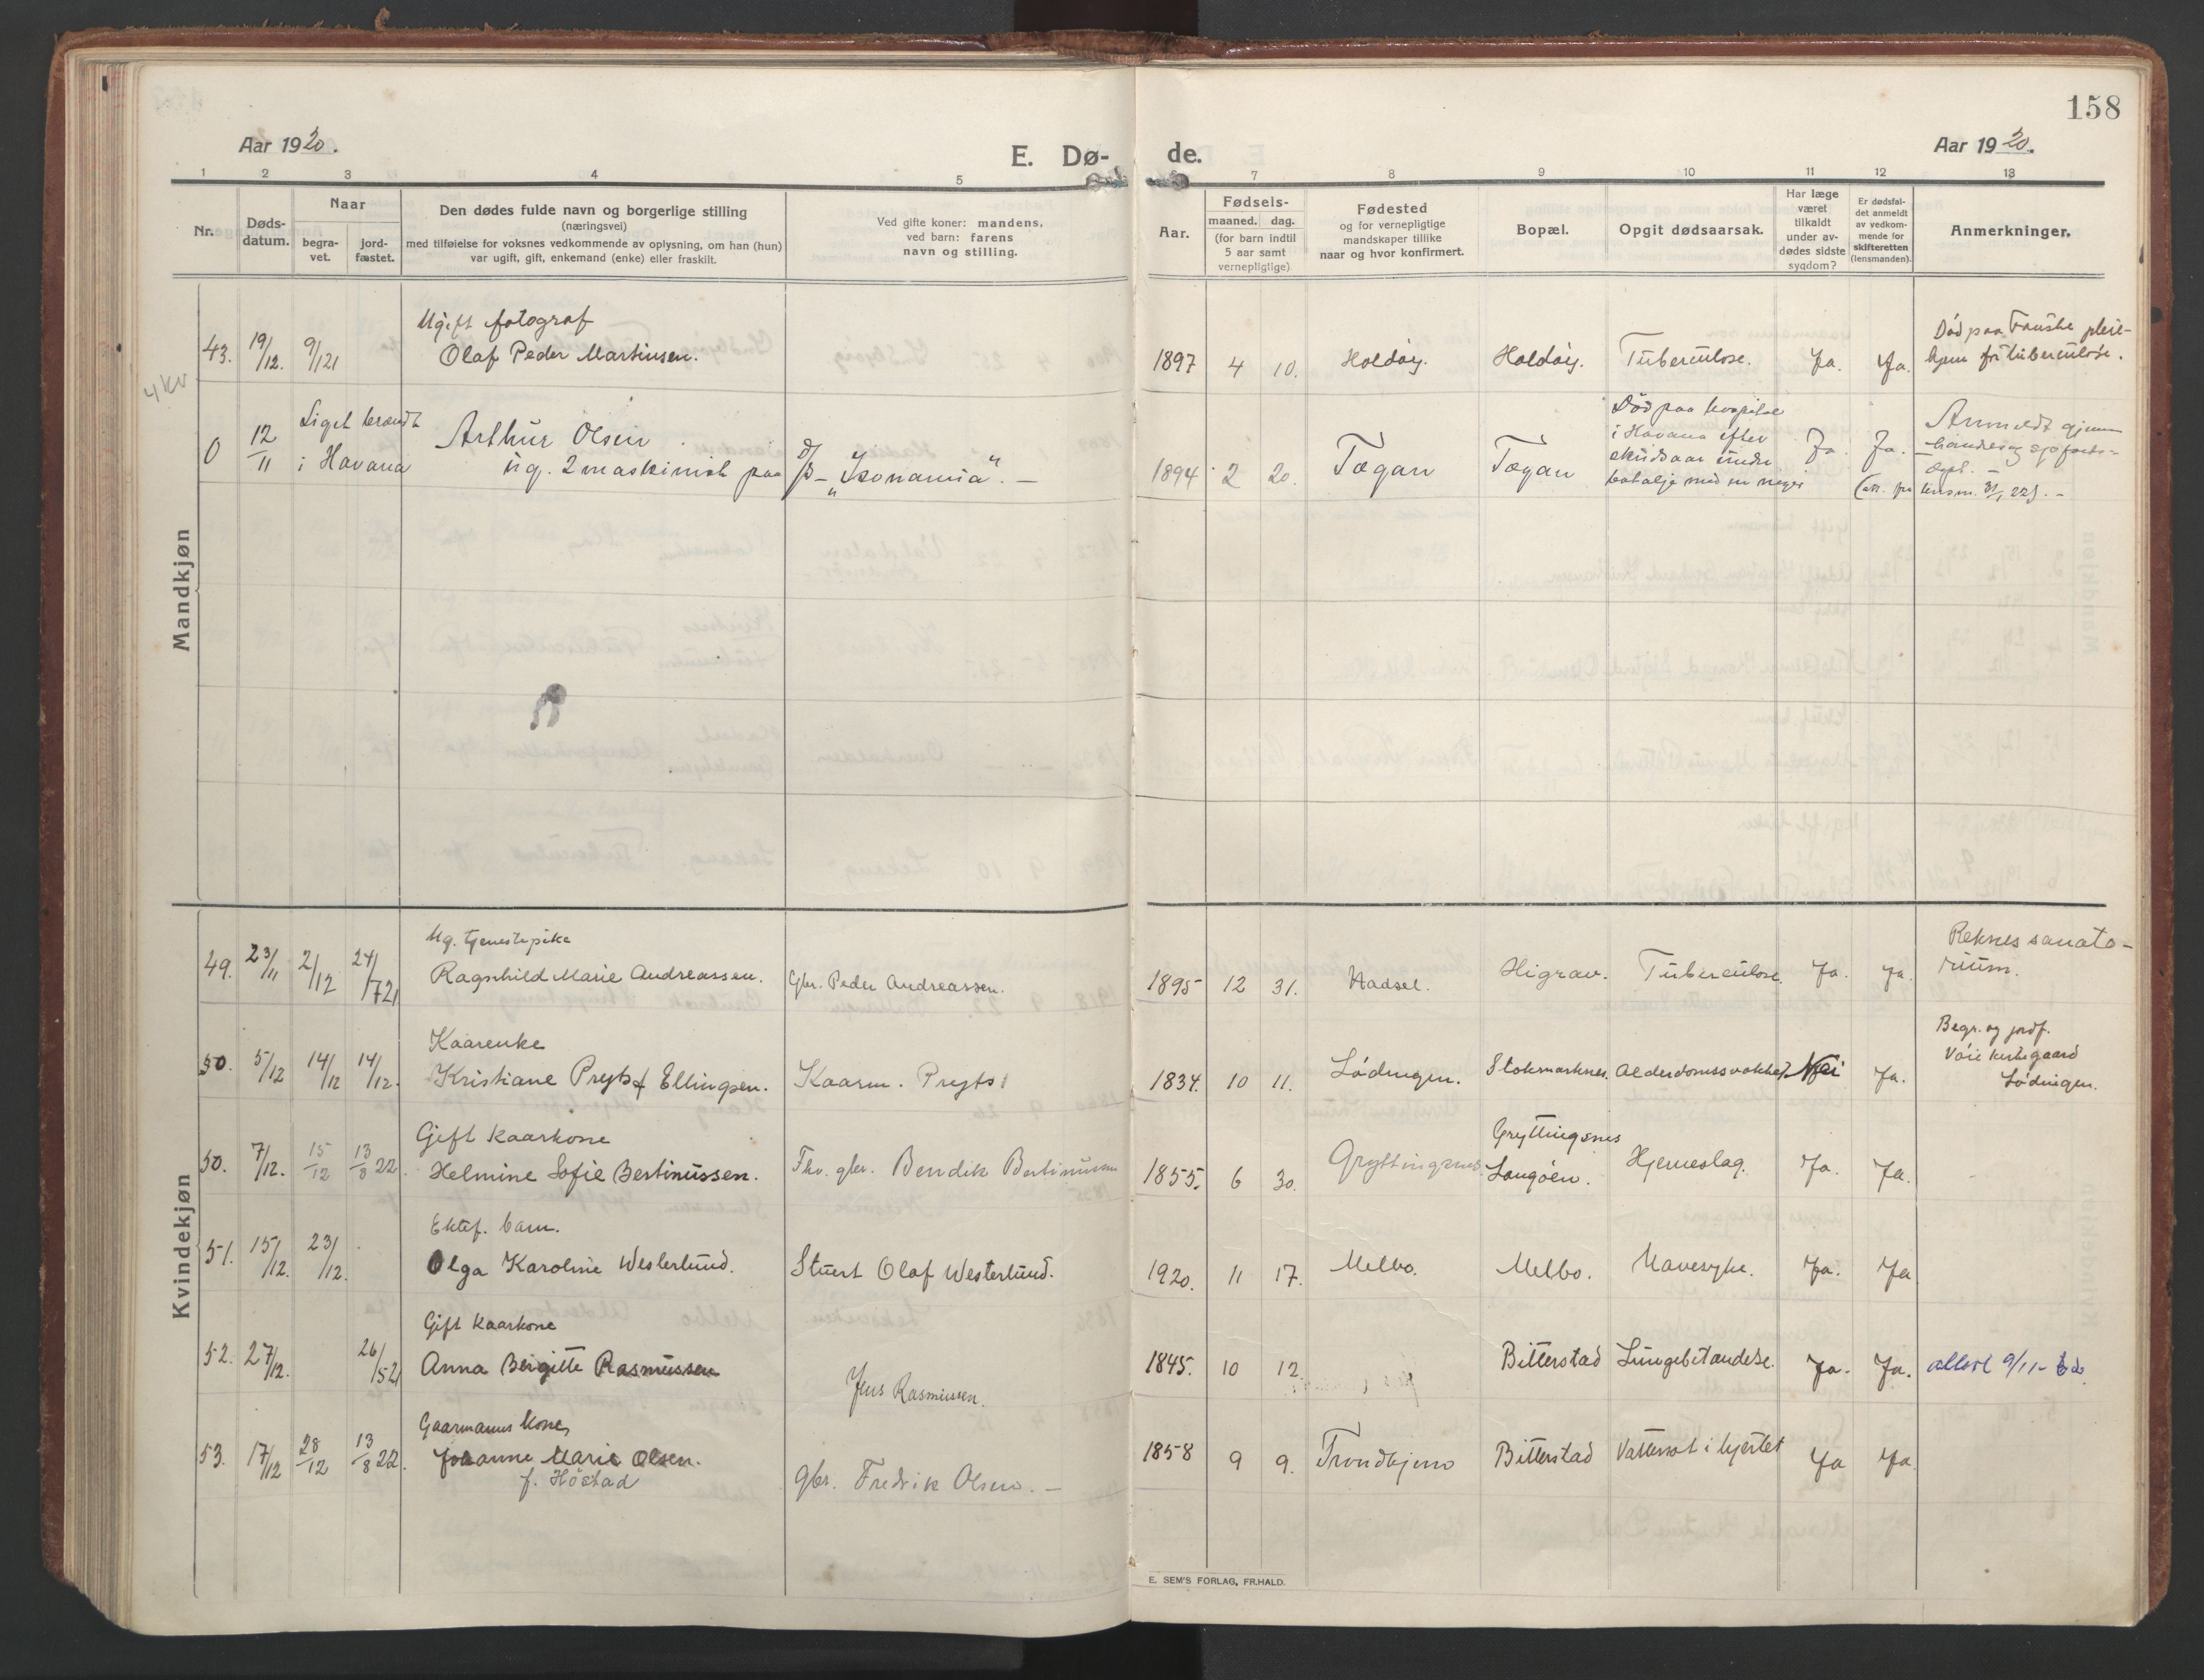 158
Aar 1920.
E. Dø-
de.
Aar 1920.
1 2 3 4 5 7 8 9 10 11 12 13
Nr.
Døds-
datum.
Naar
begra-
vet.
jord-
fæstet.
Den dødes fulde navn og borgerlige stilling
(næringsvei)
med tilføielse for voksnes vedkommende av oplysning, om han (hun)
var ugift, gift, enkemand (enke) eller fraskilt.
Ved gifte koner: mandens,
ved barn: farens
navn og stilling.
Aar.
Fødsels-
maaned. dag.
(for barn indtil
5 aar samt
vernepligtige)
Fødested
og for vernepligtige
mandskaper tillike
naar og hvor konfirmert.
Bopæl.
Opgit dødsaarsak.
Har læge
været
tilkaldt
under av-
dødes sidste
sygdom?
Er dødsfal-
det anmeldt
av vedkom-
mende for
skifteretten
(lensmanden).
Anmerkninger.
Mandkjøn
Ugift fotograf
43. 19/12. 9/121 Olaf Peder Martinsen. 1897 4 10. Holdøy. Holdøy. Tuberculose. Ja. Ja.
Død paa Fauske pleie-
hjem for tuberculose.
4 kr
0 12/11
Liget brændt
i Havana
Arthur Olsen
ug. 2 maskinist paa D/S – "Isonamia". –
1894 2 20. Tøgan Tøgan
Død paa hospital
i Havana efter
skudsaar under
batalje med en neger
Ja. Ja.
Anmeldt gjennem
handels og sjøfarts-
dept. –
(att. fra lensm. 31/1 22). –
Kvindekjøn
Ug. tjenestepike
49. 23/11 2/12 24/721 Ragnhild Marie Andreassen. Gbr. Peder Andreassen. 1895 12 31. Hadsel. Higrav. Tuberculose. Ja. Ja.
Reknes sanato-
rium.
Kaarenke
50. 5/12 14/12 14/12. Kristiane Preyts f Ellingsen. Kaarm. Preyts 1834. 10 11. Lødingen. Stokmarknes. Alderdomssvakhet. Nei Ja.
Begr. og jordf.
Vaie kirkegaard
Lødingen.
Gift kaarkone
50. 7/12. 15/12 13/8 22. Helmine Sofie Bertinussen. Fhv. gbr. Bendik Bertinussen 1855. 6 30. Gryttingsnes.
Gryttingsnes
Langøen. Hjerneslag. Ja. Ja.
Ektef. barn.
51. 15/12. 23/12. Olga Karoline Westerlund. Stuert Olaf Westerlund. 1920. 11 17. Melbo. Melbo. Mavesyke. Ja. Ja
Gift kaarkone
52. 27/12. 26/521 Anna Bergitte Rasmussen Jens Rasmussen. 1845. 10 12. Bitterstad Lungebetændelse. Ja. Ja. attest 9/11-
Gaarmanns kone
53. 17/12 28/12 13/8 22. Johanne Marie Olsen.
f. Høstad
gbr. Fredrik Olsen. – 1858 9 9. Trondhjem Bitterstad Vattersot i hjertet Ja Ja.
E. SEM'S FORLAG, FR.HALD.